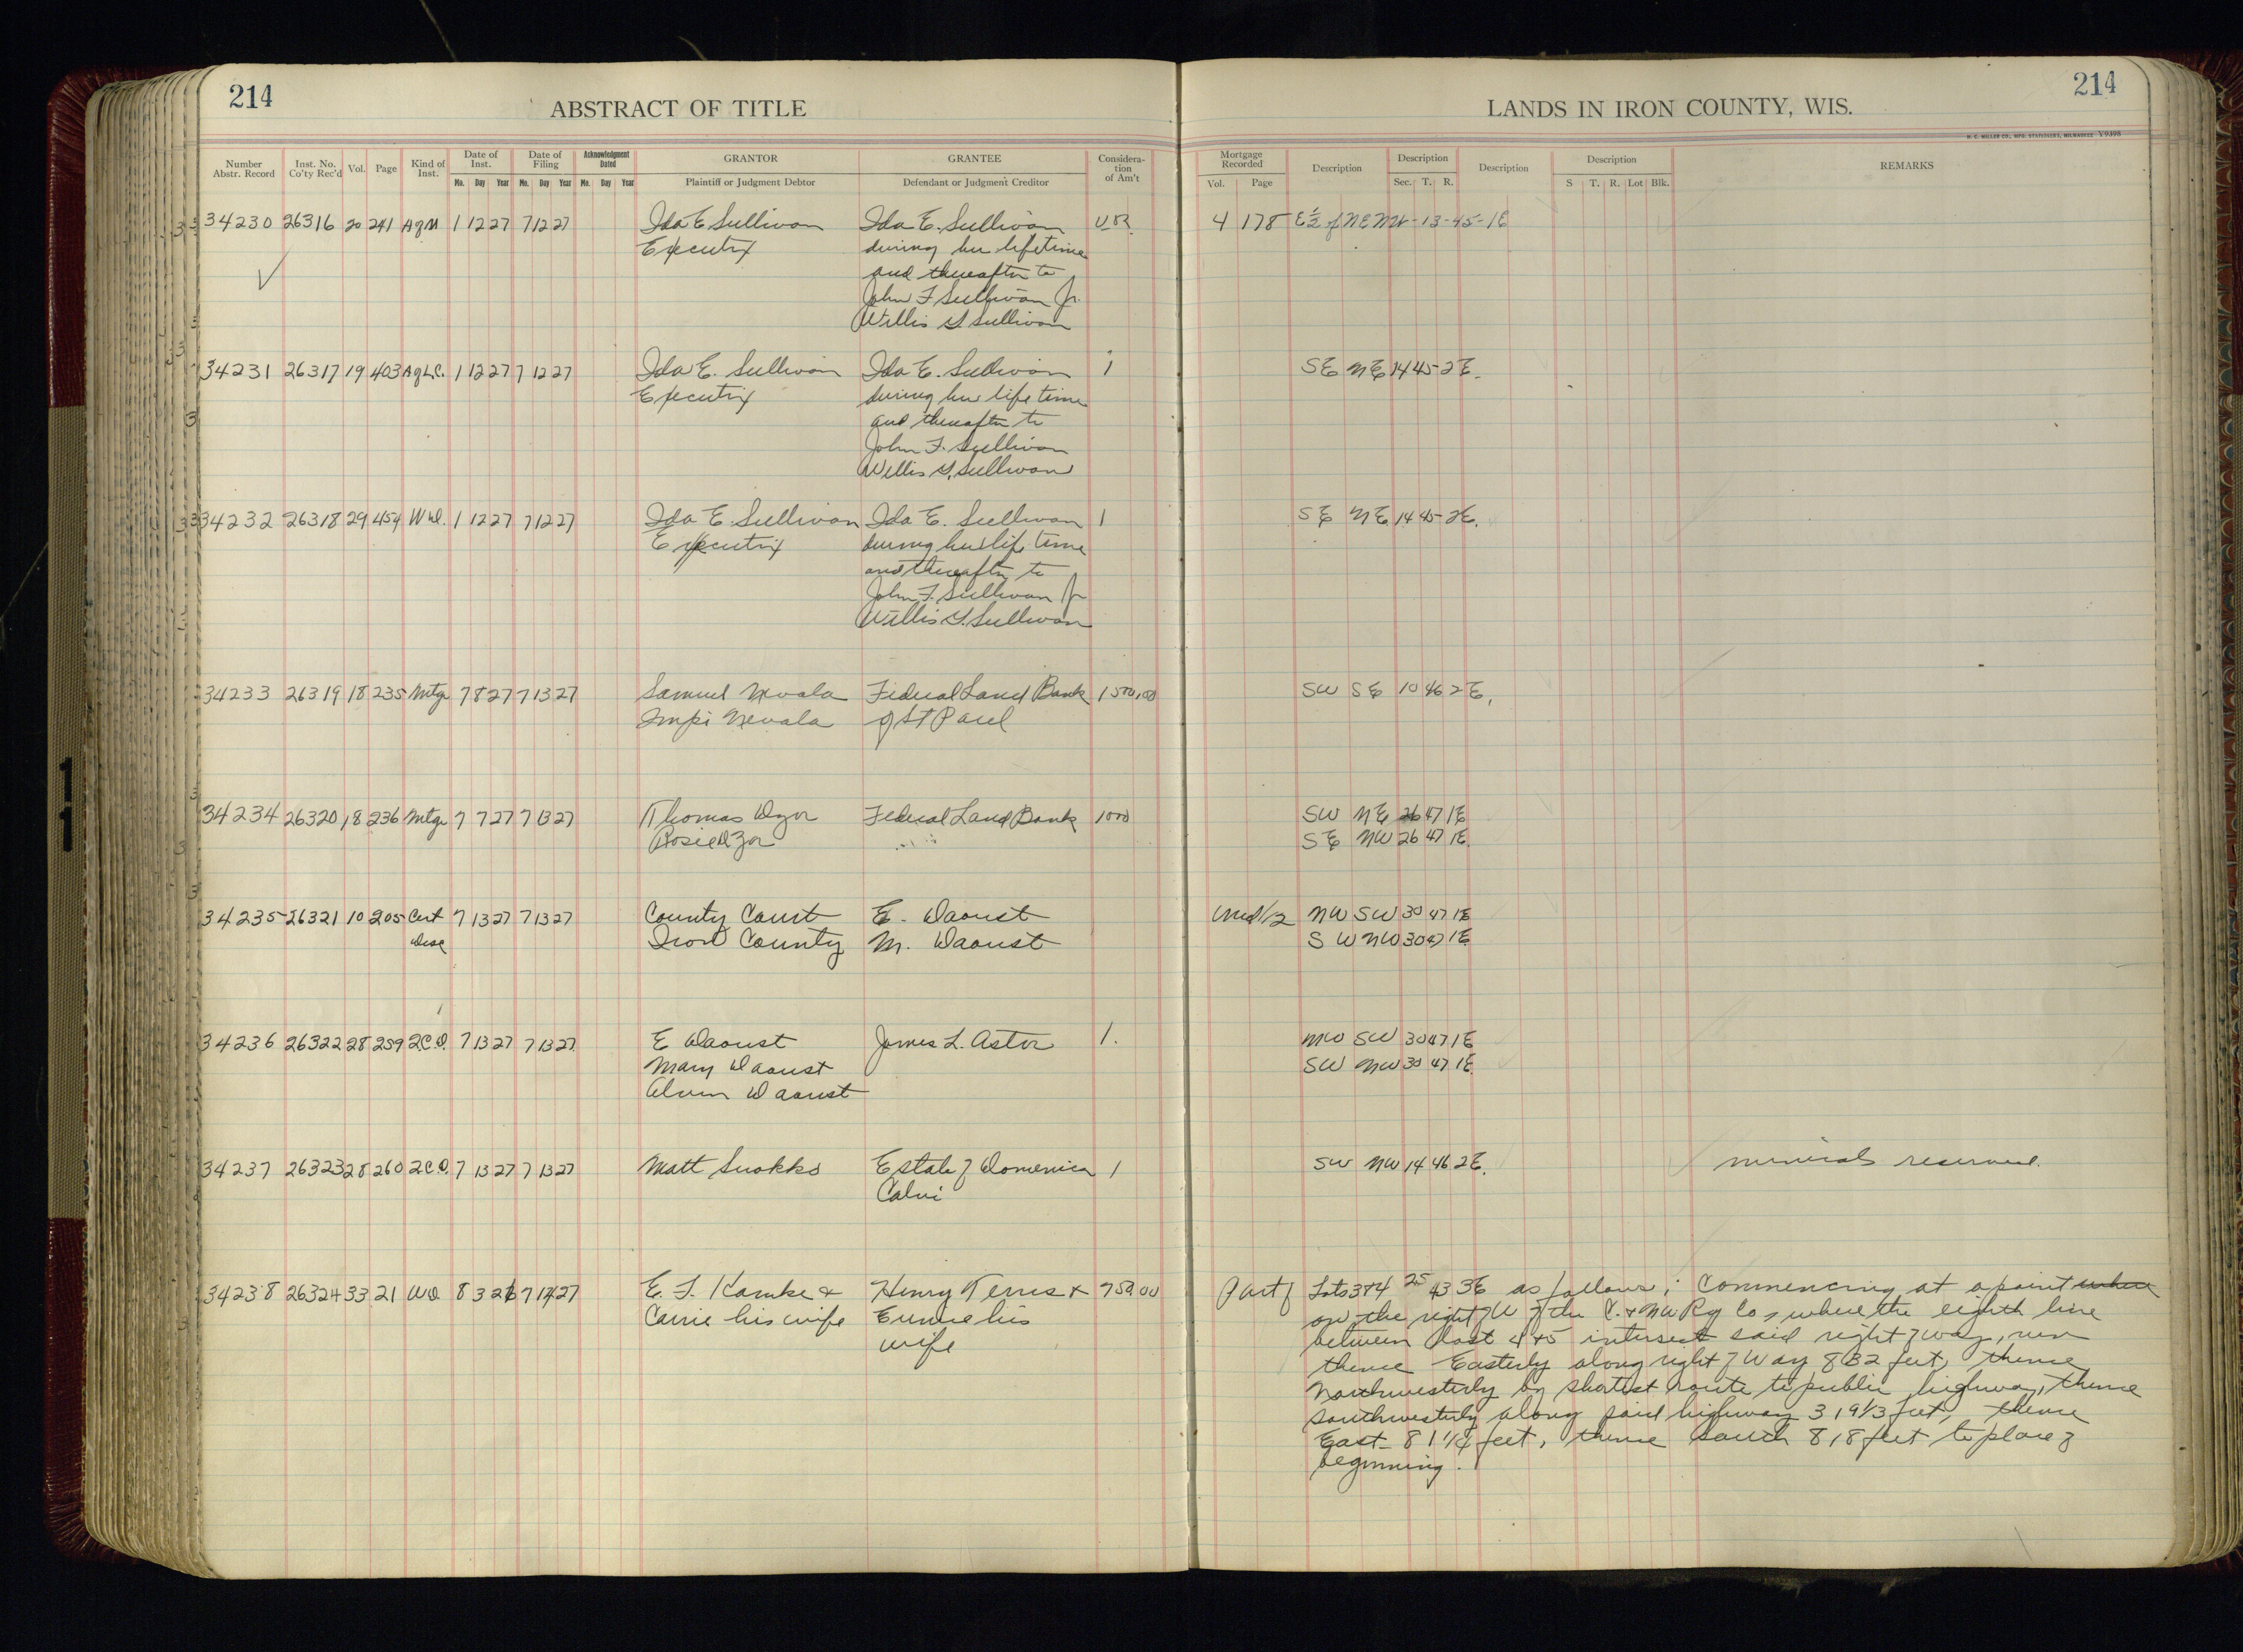 214
ABSTRACT OF TITLE
LANDS IN IRON COUNTY, WIS.
214
H. C. MILLER CO., MFG. STATIONERS, MILWAUKEE Y9498
Number Abstr. Record Inst. No. Co'ty Rec'd Vol. Page Kind of Inst. Date of Inst. Mo. Day Year Date of Filing Mo. Day Year Acknowledgment Dated Mo. Day Year GRANTOR Plaintiff or Judgment Debtor GRANTEE Defendant or Judgment Creditor Considera-tion of Am't Mortgage Recorded Vol. Page Description Description Sec. T. R. Description Description S T. R. Lot Blk. REMARKS
34230 26316 20 241 AgM 1 12 27 7 12 27 Ida E Sullivan Ida E. Sullivan 4 178 E½ of NENW-13-45-1E
Executrix during her lifetime
and thereafter to
John F Sullivan Jr.
Willis G Sullivan
34231 26317 19 403 AgLC. 1 12 27 7 12 27 Ida E. Sullivan Ida E. Sullivan 1 SE NE 14 45-2E.
Executrix during her life time
and thereafter to
John F. Sullivan
Willis G. Sullivan
34232 26318 29 454 WD. 1 12 27 7 12 27 Ida E. Sullivan Ida E. Sullivan 1 SE NE 14 45-2E.
Executrix during her life time
and thereafter to
John F. Sullivan Jr
Willis G. Sullivan
34233 26319 18 235 Mtge 7 8 27 7 13 27 Samuel Nevala Federal Land Bank 1500.00 SW SE 10 46 2E.
Impi Nevala of St Paul
34234 26320 18 236 Mtge 7 7 27 7 13 27 Thomas Dzor Federal Land Bank 1000 SW NE 26 47 1E
Rosie Dzor SE NW 26 47 1E.
34235 26321 10 205 Cert 7 13 27 7 13 27 County Court E. Daoust Und 1/2 NW SW 30 47 1E
Desc Iron County M. Daoust SW NW 30 47 1E
34236 26322 28 259 2.C.D. 7 13 27 7 13 27 E Daoust James L. Astor 1. NW SW 30 47 1E
Mary Daoust SW NW 30 47 1E.
Alvin Daoust
34237 26323 28 260 2C.D. 7 13 27 7 13 27 Matt Suokko Estate of Domenica 1 SW NW 14 46 2E. minerals reserved.
Calvi
34238 26324 33 21 WD 8 3 26 7 14 27 E. F. Kamke & Henry Terris & 750.00 Part of Lots 3+4 25 43 3E as follows; Commencing at a point where
Carrie his wife Eunice his on the right of W of the C. & NW Ry Co, where the eighth line
wife between Lost 4+5 intersect said right of way, run
thence Easterly along right of Way 832 feet, thence
Northwesterly by shortest route to public highway, thence
southwesterly along said highway 319 1/3 feet, thence
East 81 1/4 feet, thence south 818 feet to place of
beginning.